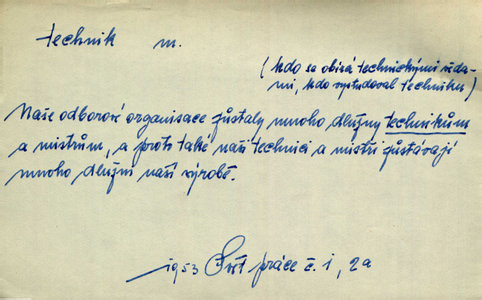 technik m.
(kdo se obírá technickými věda-
mi, kdo vystudoval techniku)
Naše odborové organisace zůstaly mnoho dlužny technikům
a mistrům, a proto také naši technici a mistři zůstávají
mnoho dlužni naší výrobě.
1953 Svět práce č. 1, 2a